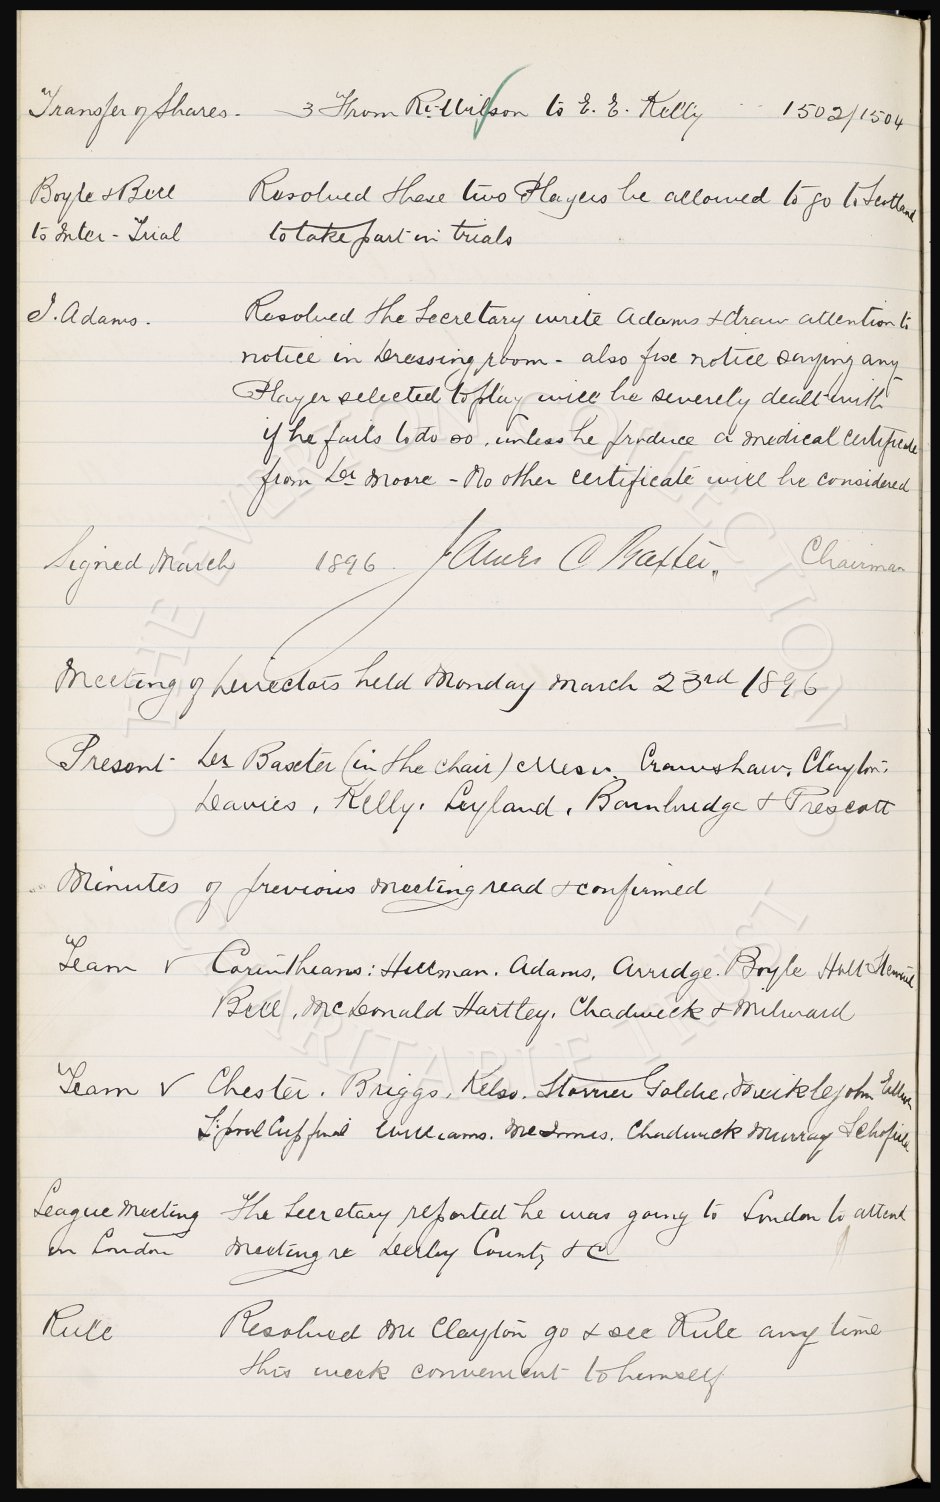 Transfer of Shares - 3 From R. Wilson to E. E. Kelly 1502/1504
Boyle & Bell Resolved these two Players be allowed to go to Scotland
to Inter-Trial to take part in trials
J. Adams. Resolved the Secretary write Adams & draw attention to
notice in Dressing room - also fix notice saying any
Player selected to play will be severely dealt with
if he fails to do so, unless he produce a medical certificate
from Dr Moore - No other certificate will be considered
Signed March 1896 James C Baxter Chairman
Meeting of Directors held Monday March 23rd 1896
Present Dr Baxter (in the chair) Messrs. Crawshaw, Clayton,
Davies, Kelly, Leyland, Bainbridge & Prescott
Minutes of previous meeting read & confirmed
Team v Corinthians: Hillman, Adams, Arridge. Boyle Holt Stewart
Bell, McDonald Hartley, Chadwick & Milward
Team v Chester. Briggs, Kelso, Storrier Goldie, Meiklejohn Elliott
L'pool Cup final Williams, McInnes, Chadwick Murray Schofield
League Meeting The Secretary reported he was going to London to attend
in London Meeting re Derby County &c
Rule Resolved Mr Clayton go & see Rule any time
this week convenient to himself
THE EVERTON COLLECTION
CHARITABLE TRUST